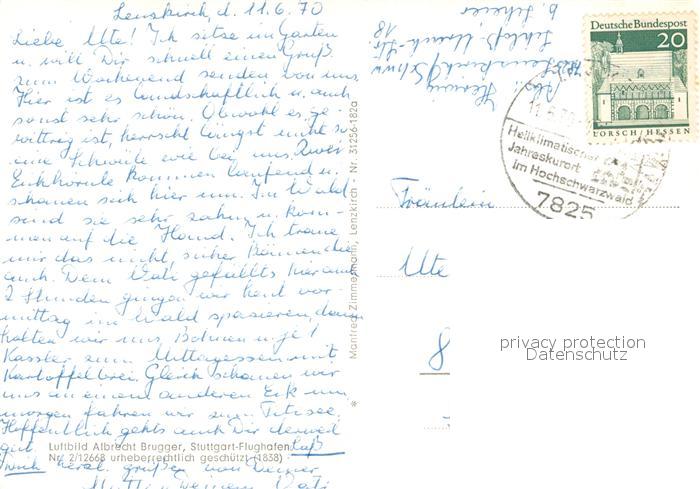 Lenzkirch, d. 11.6.70
Liebe Ute! Ich sitze im Garten
u. will Dir schnell einen Gruß
zum Wochenend senden von uns.
Hier ist es landschaftlich u. auch
sonst sehr schön. Obwohl es ge-
wittrig ist, herrscht längst nicht so
eine Schwüle wie bei uns. Zwei
Eichhörnle kommen laufend u.
schauen sich hier um. Im Wald
sind sie sehr zahm u. kom-
men auf die Hand. Ich traue
mir das nicht, sicher können die
auch. Dem Vati gefällts hier auch
2 Stunden gingen wir heut vor-
mittag im Wald spazieren, dann
holten wir uns, Bohnen u. je 1
Kassler zum Mittagessen mit
Kartoffelbrei. Gleich schauen wir
uns in einem anderen Eck um
morgen fahren wir zum Titisee.
Hoffentlich gehts auch Dir derweil
gut. Laß
herzl. grüßen von Deiner
Mutti u. Deinem Vati
Luftbild Albrecht Brugger, Stuttgart-Flughafen
Nr. 2/12668 urheberrechtlich geschützt (1838)
Manfred Zimmermann, Lenzkirch · Nr. 31256-182a
Abs.: Herwig
7825 Lenzkirch/Schw
18
b.
Deutsche Bundespost
20
LORSCH/HESSEN
11.6.70
Heilklimatischer
Jahreskurort
im Hochschwarzwald
7825
Fräulein
Ute
8
privacy protection
Datenschutz